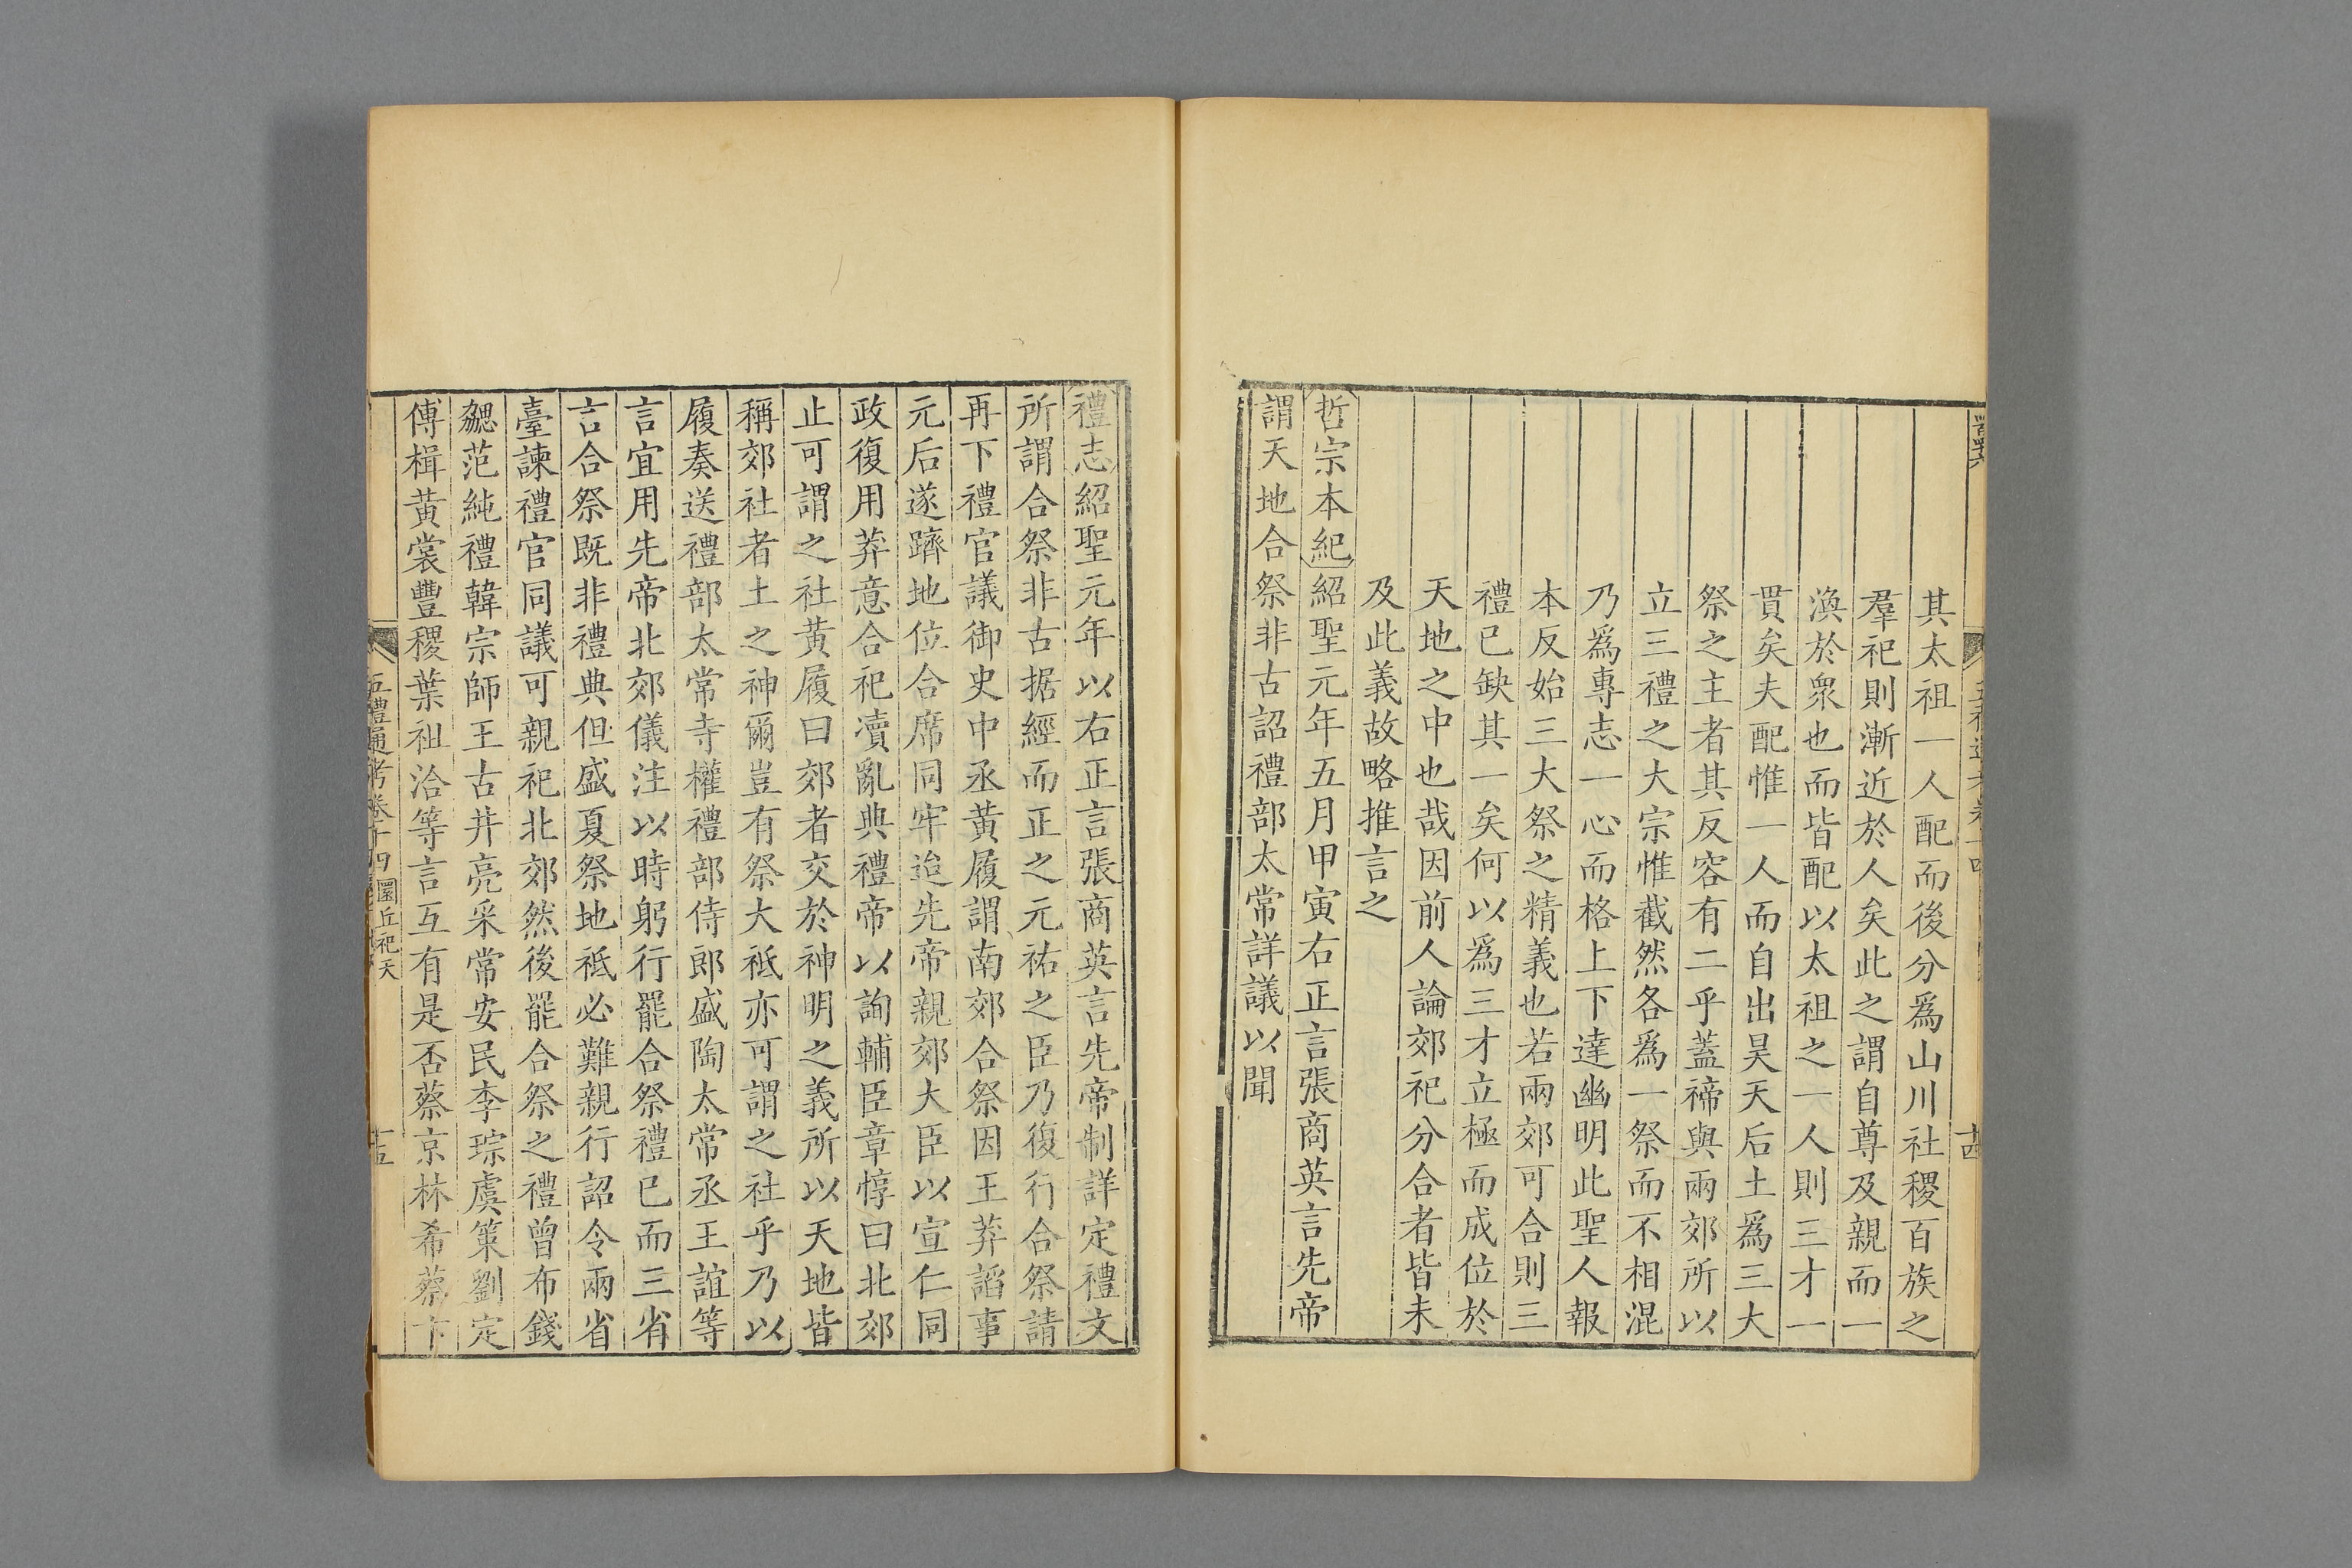 其太祖一人配而後分爲山川社稷百族之
羣祀則漸近於人矣此之謂自尊及親而一
渙於衆也而皆配以太祖之一人則三才一
貫矣夫配惟一人而自出昊天后土爲三大
祭之主者其反容有二乎蓋禘與兩郊所以
立三禮之大宗惟截然各爲一祭而不相混
乃爲專志一心而格上下達幽明此聖人報
本反始三大祭之精義也若兩郊可合則三
禮已缺其一矣何以爲三才立極而成位於
天地之中也哉因前人論郊祀分合者皆未
及此義故略推言之
哲宗本紀紹聖元年五月甲寅右正言張商英言先帝
謂天地合祭非古詔禮部太常詳議以聞
十四
禮志紹聖元年以右正言張商英言先帝制詳定禮文
所謂合祭非古据經而正之元祐之臣乃復行合祭請
再下禮官議御史中丞黃履謂南郊合祭因王莽諂事
元后遂躋地位合席同牢迨先帝親郊大臣以宣仁同
政復用莽意合祀瀆亂典禮帝以詢輔臣章惇曰北郊
止可謂之社黃履曰郊者交於神明之義所以天地皆
稱郊社者土之神爾豈有祭大祗亦可謂之社乎乃以
履奏送禮部太常寺權禮部侍郎盛陶太常丞王誼等
言宜用先帝北郊儀注以時躬行罷合祭禮已而三省
言合祭既非禮典但盛夏祭地祗必難親行詔令兩省
臺諫禮官同議可親祀北郊然後罷合祭之禮曾布錢
勰范純禮韓宗師王古井亮采常安民李琮虞策劉定
傅楫黃裳豐稷葉祖洽等言互有是否蔡京林希蔡卞
五禮通考卷十四圜丘祀天
十五